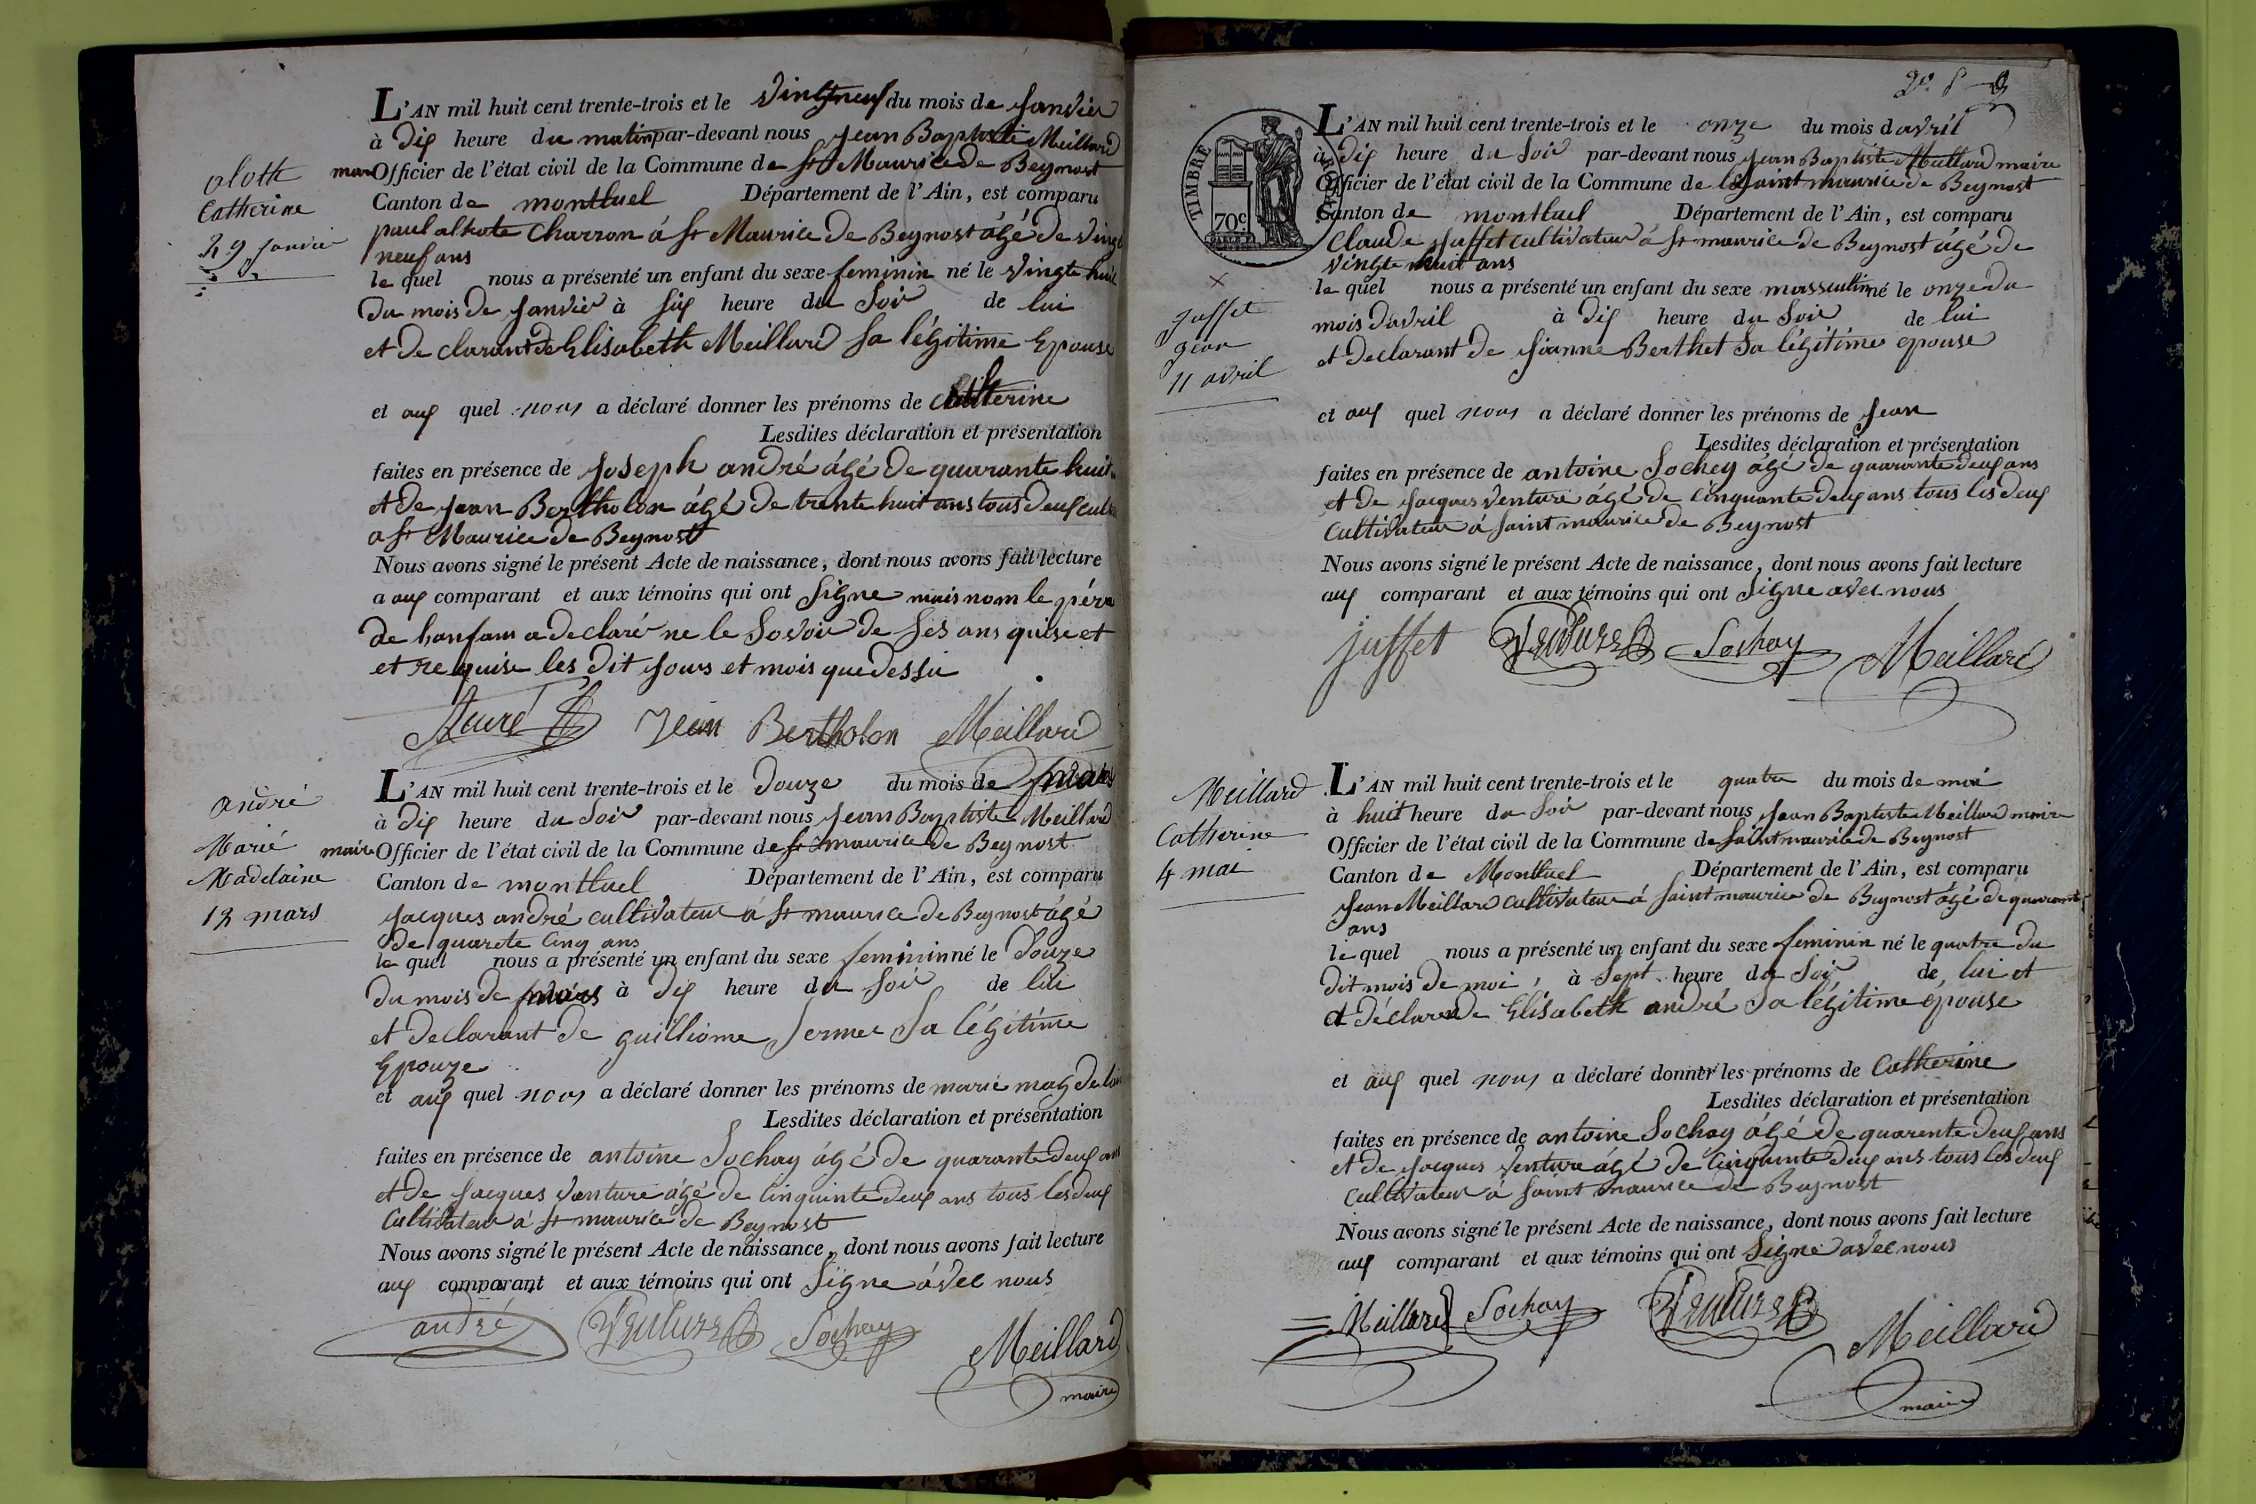 oloth
Catherine
29 janvier
L'AN mil huit cent trente-trois et le vingtneuf du mois de janvier
à dix heure du matin par-devant nous jean Baptiste Meillard
maire Officier de l'état civil de la Commune de St Maurice de Beynost
Canton de montluel Département de l'Ain, est comparu
paul Charron à St Maurice de Beynost âgé de vingt
neuf ans
le quel nous a présenté un enfant du sexe feminin né le vingte huit
du mois de janvier à six heure du Soir de lui
et de clarant de Elisabeth Meillard sa légitime Epouse
et aux quel nous a déclaré donner les prénoms de Catherine
Lesdites déclaration et présentation
faites en présence de joseph andré âgé de quarante huit
et de jean Bertholon âgé de trente huit ans tous deux
a St Maurice de Beynost
Nous avons signé le présent Acte de naissance, dont nous avons fait lecture
a aux comparant et aux témoins qui ont signe mais nom le père
de lanfant a declaré ne le Savoir de ses ans quise et
et re quise les dit jours et mois que dessu
André Jean Bertholon Meillard
andré
Marie
Madelaine
12 mars
L'AN mil huit cent trente-trois et le douze du mois de mars
à dix heure du Soir par-devant nous jean Baptiste Meillard
maire Officier de l'état civil de la Commune de St maurice de Beynost
Canton de montluel Département de l'Ain, est comparu
jacques andré cultivateur à St maurice de Beynost âgé
de quarete cinq ans
le quel nous a présenté un enfant du sexe feminin né le douze
du mois de mars à dix heure du soir de lui
et declarant de guilliome sermet sa légitime
Epouze
et aux quel nous a déclaré donner les prénoms de marie
Lesdites déclaration et présentation
faites en présence de antoine Sochay âgé de quarante deux ans
et de jacques venture âgé de cinquinte deux ans tous les deux
Cultivateur à St maurice de Beynost
Nous avons signé le présent Acte de naissance, dont nous avons fait lecture
aux comparant et aux témoins qui ont Signe avec nous
andré Venture Sochay Meillard
maire
TIMBRE
70c
L'AN mil huit cent trente-trois et le onze du mois d avril
à dix heure du Soir par-devant nous jean Baptiste Meillard maire
Officier de l'état civil de la Commune de Saint maurice de Beynost
Canton de montluel Département de l'Ain, est comparu
Claude juffet cultivateur à St maurice de Beynost âgé de
vingte huit ans
x
juffet
jean
11 avril
le quel nous a présenté un enfant du sexe masculin né le onze du
mois davril à dix heure du Soir de lui
et declarant de jeanne Berthet Sa légitime epouse
et aux quel nous a déclaré donner les prénoms de jean
Lesdites déclaration et présentation
faites en présence de antoine Sochay âgé de quarante deux ans
et de jacques venture âgé de cinquante deux ans tous les deux
Cultivateur à saint maurice de Beynost
Nous avons signé le présent Acte de naissance, dont nous avons fait lecture
aux comparant et aux témoins qui ont Signe avec nous
juffet Venture Sochay Meillard
Meillard
Catherine
4 mai
L'AN mil huit cent trente-trois et le quatre du mois de mai
à huit heure du Soir par-devant nous jean Baptiste Meillard maire
Officier de l'état civil de la Commune de saint maurice de Beynost
Canton de Montluel Département de l'Ain, est comparu
jean Meillard cultivateur à saint maurice de Beynost âgé de quarante
ans
le quel nous a présenté un enfant du sexe feminin né le quatre du
dit mois de mai, à Sept heure du Soir de lui et
et déclarende Elisabeth andré Sa légitime épouse
et aux quel nous a déclaré donner les prénoms de Catherine
Lesdites déclaration et présentation
faites en présence de antoine Sochay âgé de quarente deux ans
et de jacques Venture âgé de cinquinte deux ans tous les deux
Cultivateur à saint maurice de Beynost
Nous avons signé le présent Acte de naissance, dont nous avons fait lecture
aux comparant et aux témoins qui ont Signé avec nous
Meillard Sochay Venture Meillard
maire